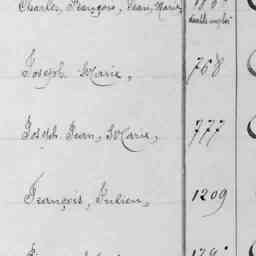 Charles, François, Jean, Marie,
double emploi
Joseph Marie, 768
Joseph Jean, Marie, 777
François, Julien, 1209